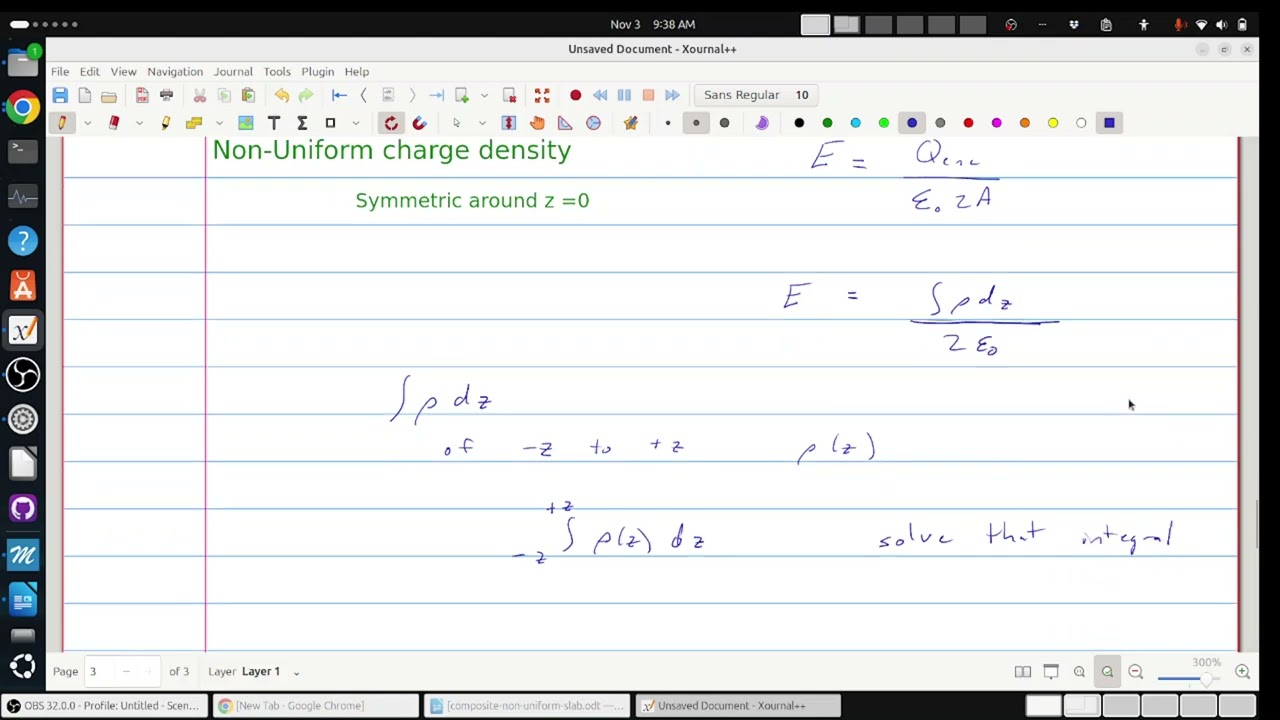 Nov 3 9:38 AM
Unsaved Document - Xournal++
File Edit View Navigation Journal Tools Plugin Help
Sans Regular 10
Non-Uniform charge density
Symmetric around z =0
E = Qenc / ε₀ 2A
E = ∫ ρ dz / 2 ε₀
∫ ρ dz
of -z to +z ρ(z)
+z
∫ ρ(z) dz solve that integral
-z
Page 3 of 3 Layer Layer 1 300%
OBS 32.0.0 - Profile: Untitled - Scen... [New Tab - Google Chrome] [composite-non-uniform-slab.odt —... Unsaved Document - Xournal++